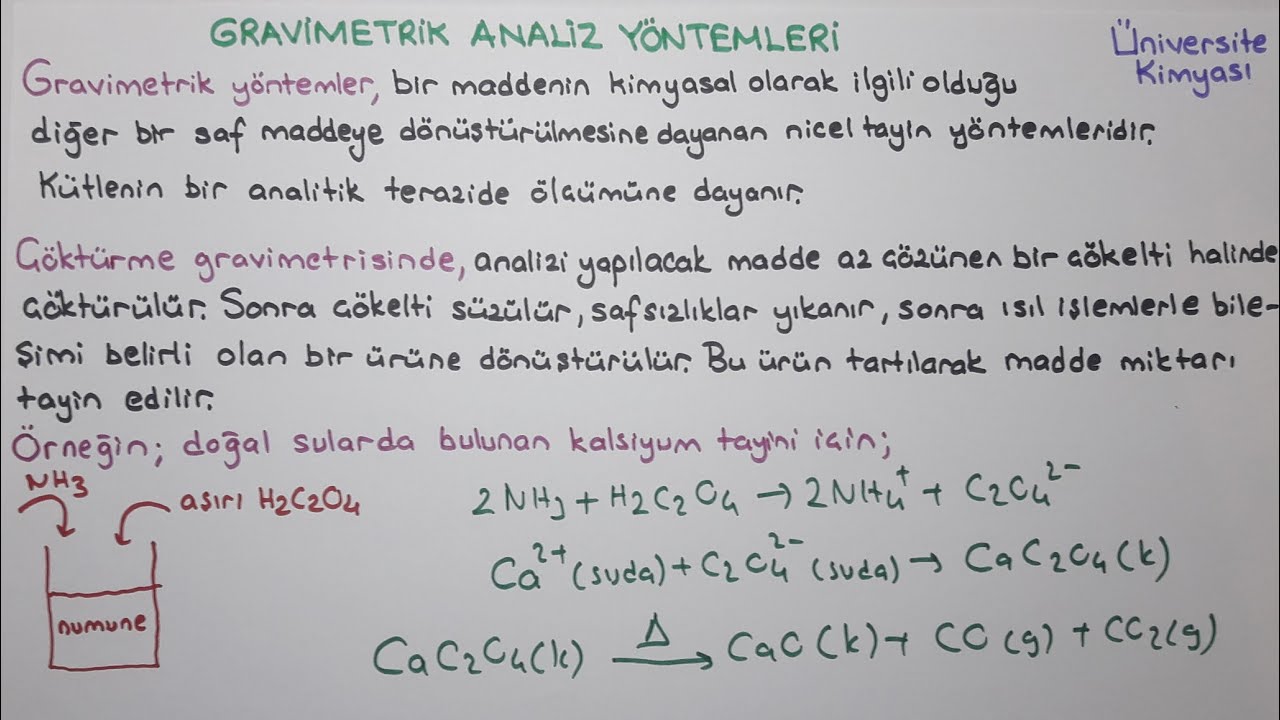 GRAVİMETRİK ANALİZ YÖNTEMLERİ
Üniversite
Kimyası
Gravimetrik yöntemler, bir maddenin kimyasal olarak ilgili olduğu
diğer bir saf maddeye dönüştürülmesine dayanan nicel tayin yöntemleridir.
Kütlenin bir analitik terazide ölçümüne dayanır.
Çöktürme gravimetrisinde, analizi yapılacak madde az çözünen bir çökelti halinde
çöktürülür. Sonra çökelti süzülür, safsızlıklar yıkanır, sonra ısıl işlemlerle bile-
şimi belirli olan bir ürüne dönüştürülür. Bu ürün tartılarak madde miktarı
tayin edilir.
Örneğin; doğal sularda bulunan kalsiyum tayini için;
NH3
aşırı H2C2O4
numune
2NH3 + H2C2O4 → 2NH4⁺ + C2O4²⁻
Ca²⁺ (suda) + C2O4²⁻ (suda) → CaC2O4 (k)
CaC2O4(k) Δ→ CaO (k) + CO (g) + CO2(g)